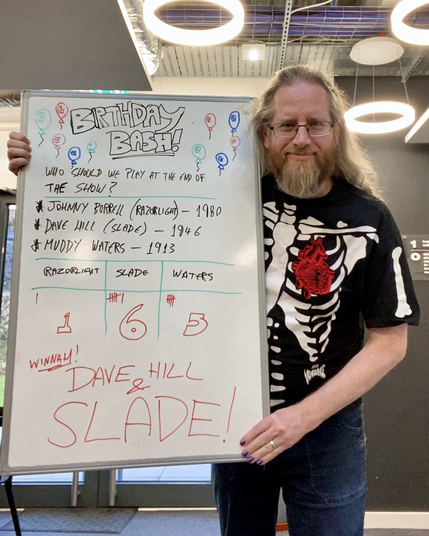 BIRTHDAY
BASH!
WHO SHOULD WE PLAY AT THE END OF
THE SHOW?
* JOHNNY BORRELL (RAZORLIGHT) – 1980
* DAVE HILL (SLADE) – 1946
* MUDDY WATERS – 1913
RAZORLIGHT SLADE WATERS
1 6 5
WINNAH!
DAVE HILL
&
SLADE!